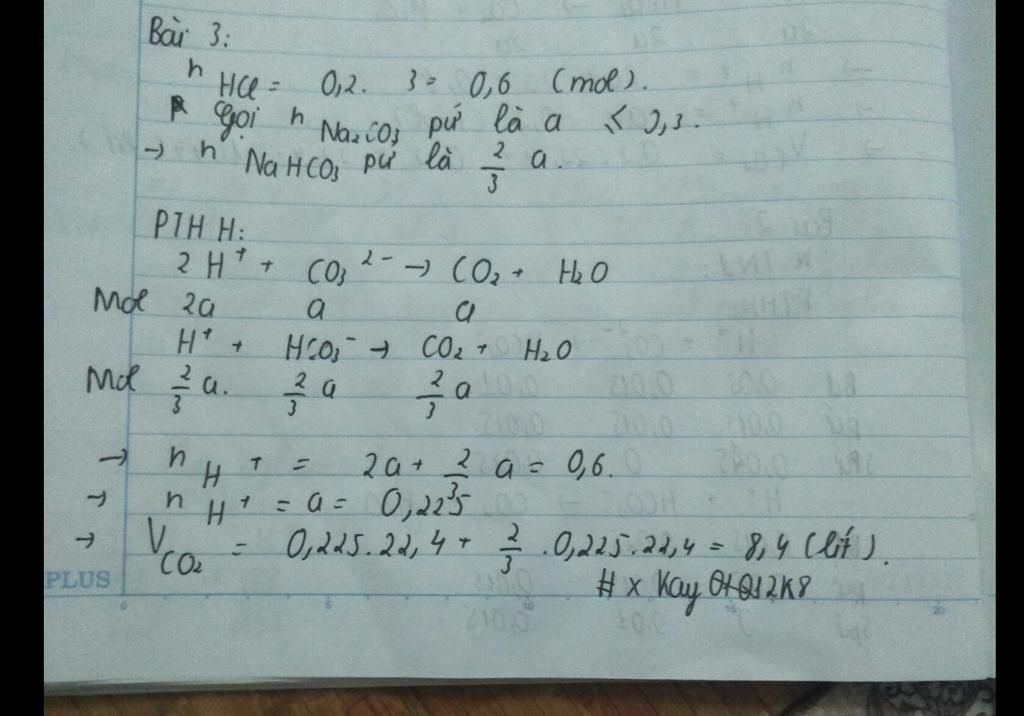 Bài 3:
n HCl = 0,2. 3 = 0,6 (mol).
Gọi n Na2CO3 pứ là a ≤ 0,3.
→ n NaHCO3 pứ là 2/3 a.
PTHH:
2H+ + CO3 2- → CO2 + H2O
Mol 2a a a
H+ + HCO3- → CO2 + H2O
Mol 2/3 a. 2/3 a 2/3 a
→ n H+ = 2a + 2/3 a = 0,6.
→ n H+ = a = 0,225
→ V CO2 = 0,225.22,4 + 2/3 .0,225.22,4 = 8,4 (lít).
# x Kay
PLUS
0 5 10 15 20